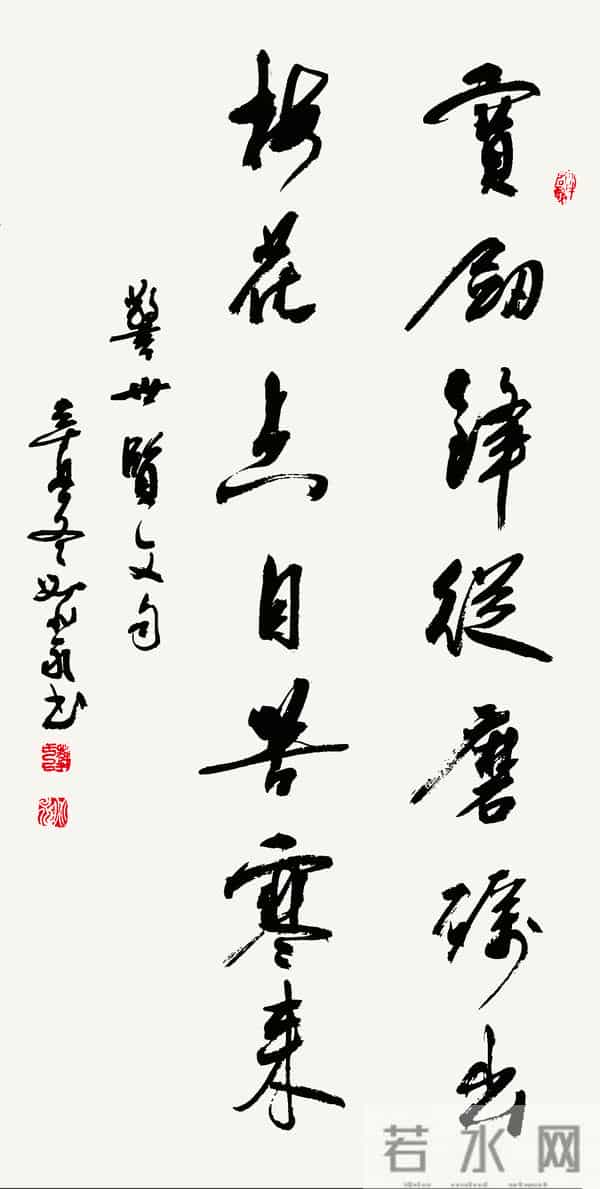 寶劍鋒從磨礪出
梅花点自苦寒来
警世賢文句
辛丑冬书
若水网